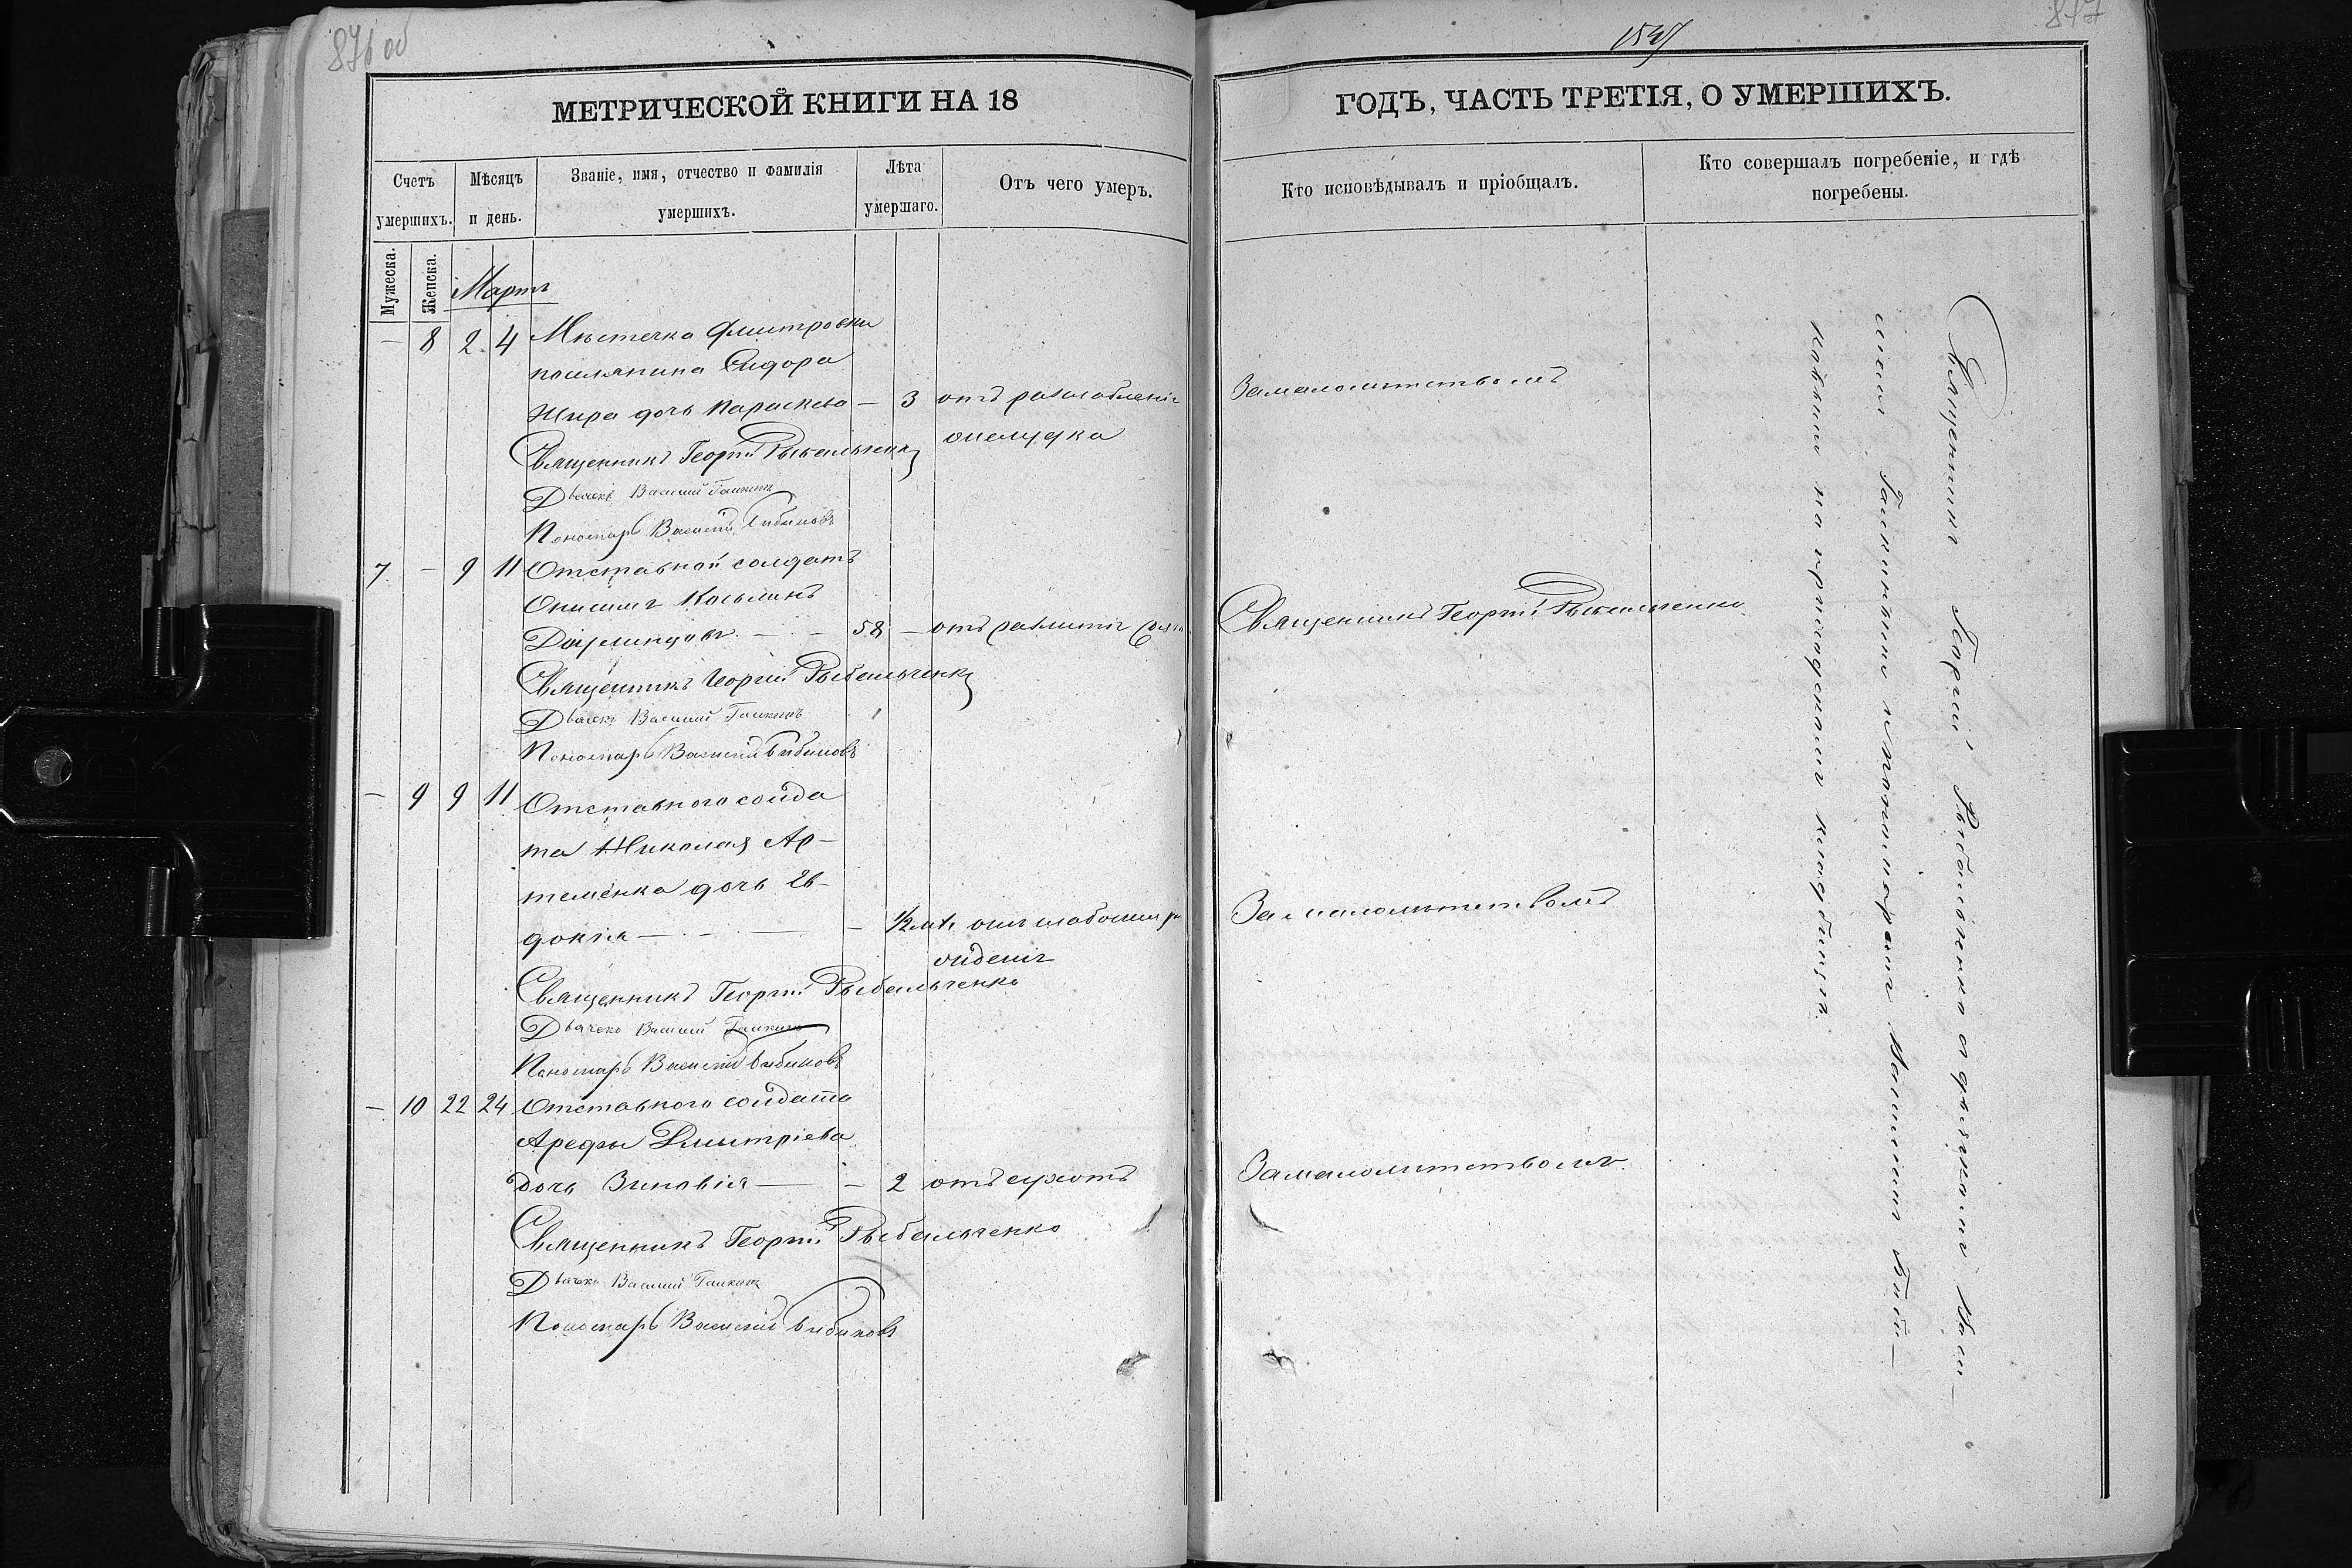 876 об
МЕТРИЧЕСКОЙ КНИГИ НА 18
Счетъ умершихъ.
Мѣсяцъ и день.
Званіе, имя, отчество и фамилія умершихъ.
Лѣта умершаго.
Отъ чего умеръ.
Мужеска.
Женска.
Мартъ
— 8 2 4 Мѣстечка Дмитровки
поселянина Сидора
Жира дочь Параскева — 3 отъ разслабленія
желудка
Священникъ Георгій Рыбальченко
Дьячекъ Василий Галкинъ
Пономарь Василій Бибиковъ
7. — 9 11 Отставной солдатъ
Онисимъ Козьминъ
58 — отъ
Священникъ Георгій Рыбальченко
Дьячекъ Василий Галкинъ
Пономарь Василій Бибиковъ
— 9 9 11 Отставного солда
та Николая Ар-
теменка дочь Ев-
докія — — — 1/2 лѣт. отъ слабости
Священникъ Георгій Рыбальченко
Дьячекъ Василий Галкинъ
Пономарь Василій Бибиковъ
— 10 22 24 Отставного солдата
Арефы Дмитріева
дочь Зиновія — — 2 отъ сухотъ
Священникъ Георгій Рыбальченко
Дьячекъ Василий Галкинъ
Пономарь Василій Бибиковъ
877
ГОДЪ, ЧАСТЬ ТРЕТІЯ, О УМЕРШИХЪ.
Кто исповѣдывалъ и пріобщалъ.
Кто совершалъ погребеніе, и гдѣ
погребены.
За малолѣтствомъ
Священникъ Георгій Рыбальченко
За малолѣтствомъ
За малолѣтствомъ.
Священникъ Георгій Рыбальченко съ дьячкомъ Васи-
ліемъ Галкинымъ и пономаремъ Василіемъ Биби-
ковымъ на приходскомъ кладбищѣ.